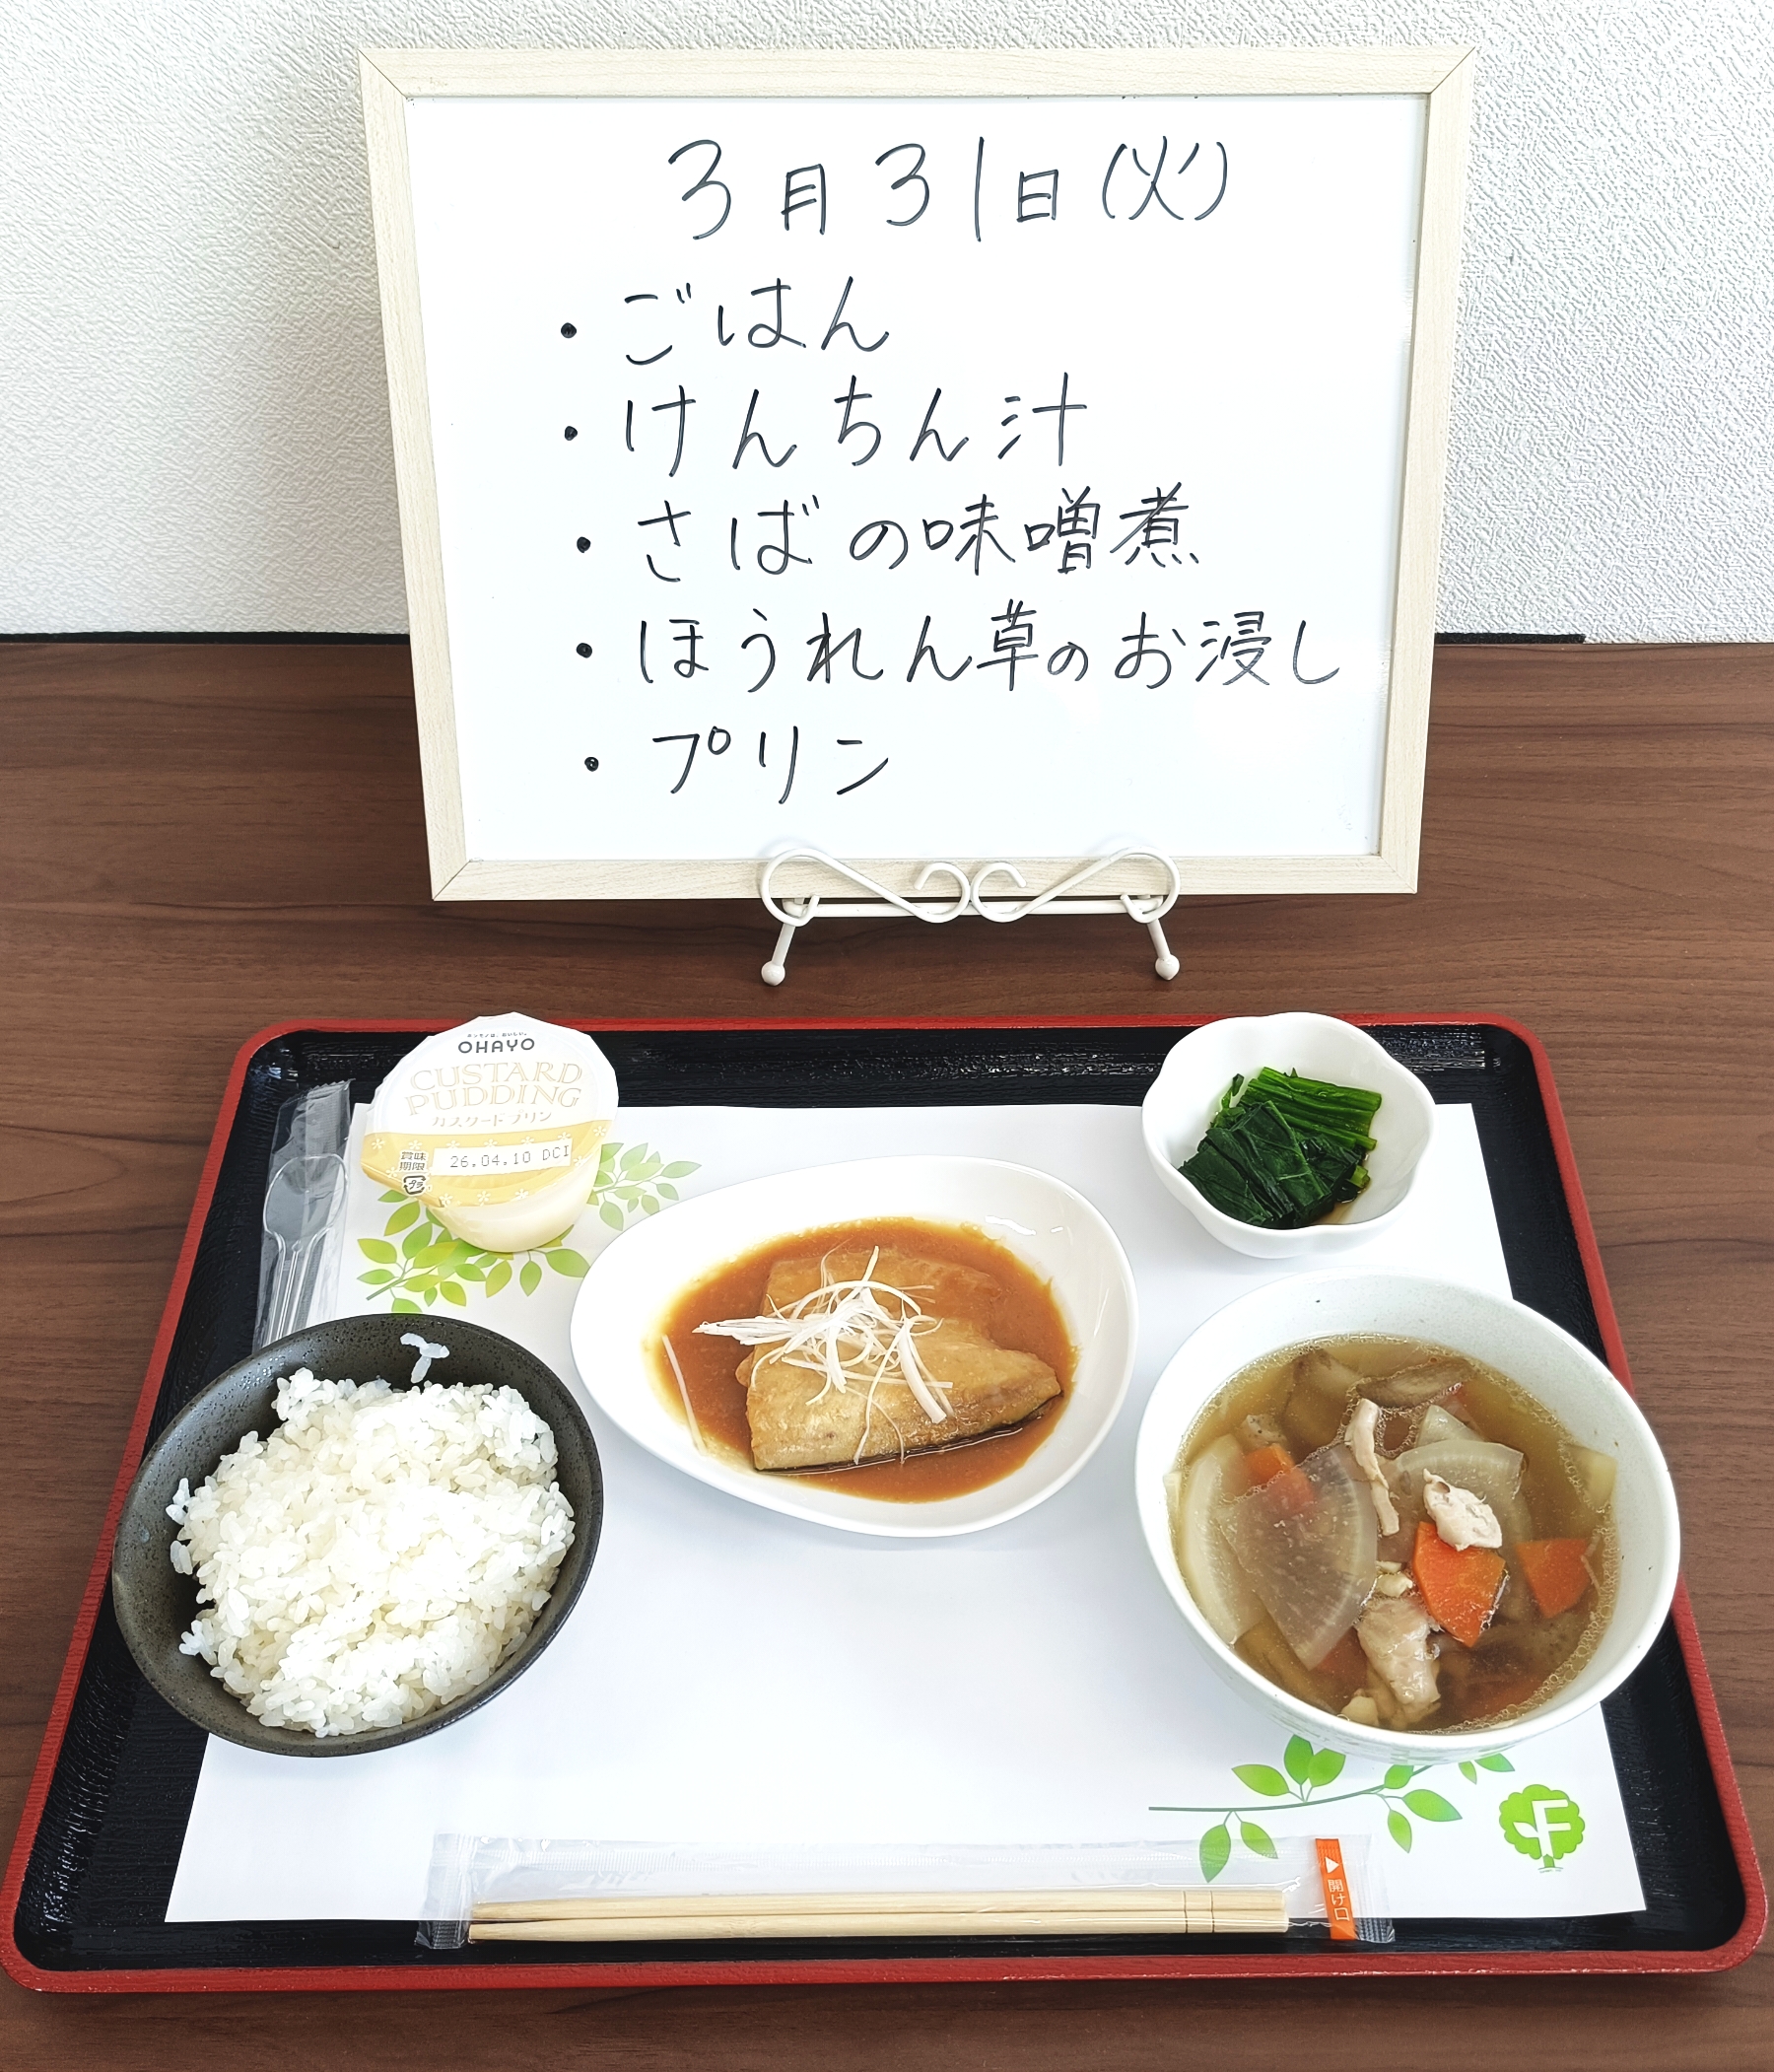 3月31日(火)
・ごはん
・けんちん汁
・さばの味噌煮
・ほうれん草のお浸し
・プリン
OHAYO
CUSTARD
PUDDING
カスタードプリン
賞味
期限
26.04.10 DCI
プラ
F
開け口